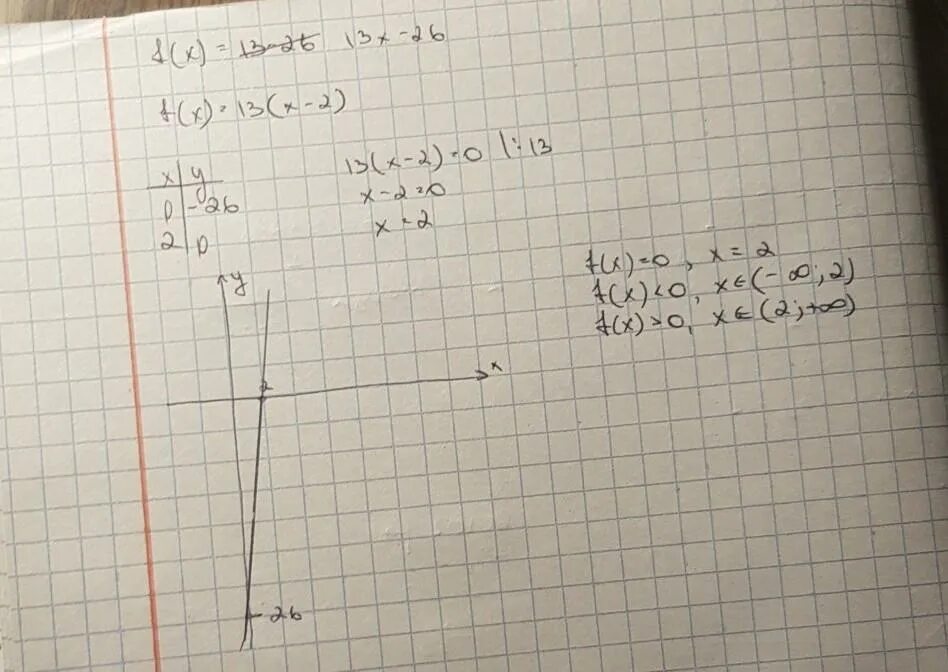 f(x) = 13-26 13x-26
f(x) = 13(x-2)
x | y
0 | -26
2 | 0
13(x-2) = 0 |:13
x-2=0
x = 2
f(x)=0, x = 2
f(x)<0, x∈(-∞;2)
f(x)>0, x∈(2;+∞)
y
x
2
-26